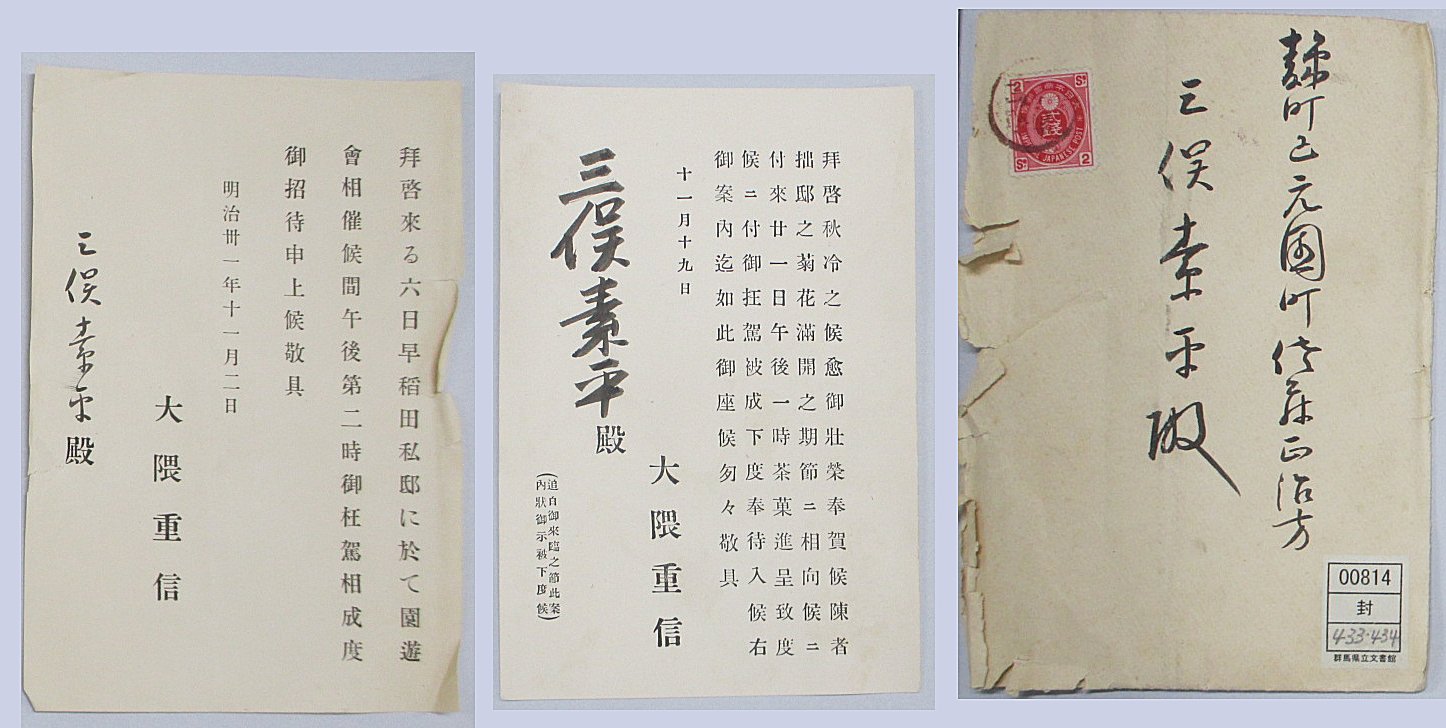 拜啓來る六日早稻田私邸に於て園遊
會相催候間午後第二時御枉駕相成度
御招待申上候敬具
明治卅一年十一月二日
大隈重信
三俣素平殿
拜啓秋冷之候愈御壯榮奉賀候陳者
拙邸之菊花滿開之期節ニ相向候ニ
付來廿一日午後一時茶菓進呈致度
候ニ付御抂駕被成下度奉待入候右
御案內迄如此御座候匆々敬具
十一月十九日
大隈重信
三俣素平殿
(追白御來臨之節此案
內狀御示被下度候)
麹町区元園町佐藤正治方
三俣素平殿
2 Sⁿ
大日本帝國郵便
貳錢
IMPERIAL JAPANESE POST
Sⁿ 2
00814
封
433・434
群馬県立文書館